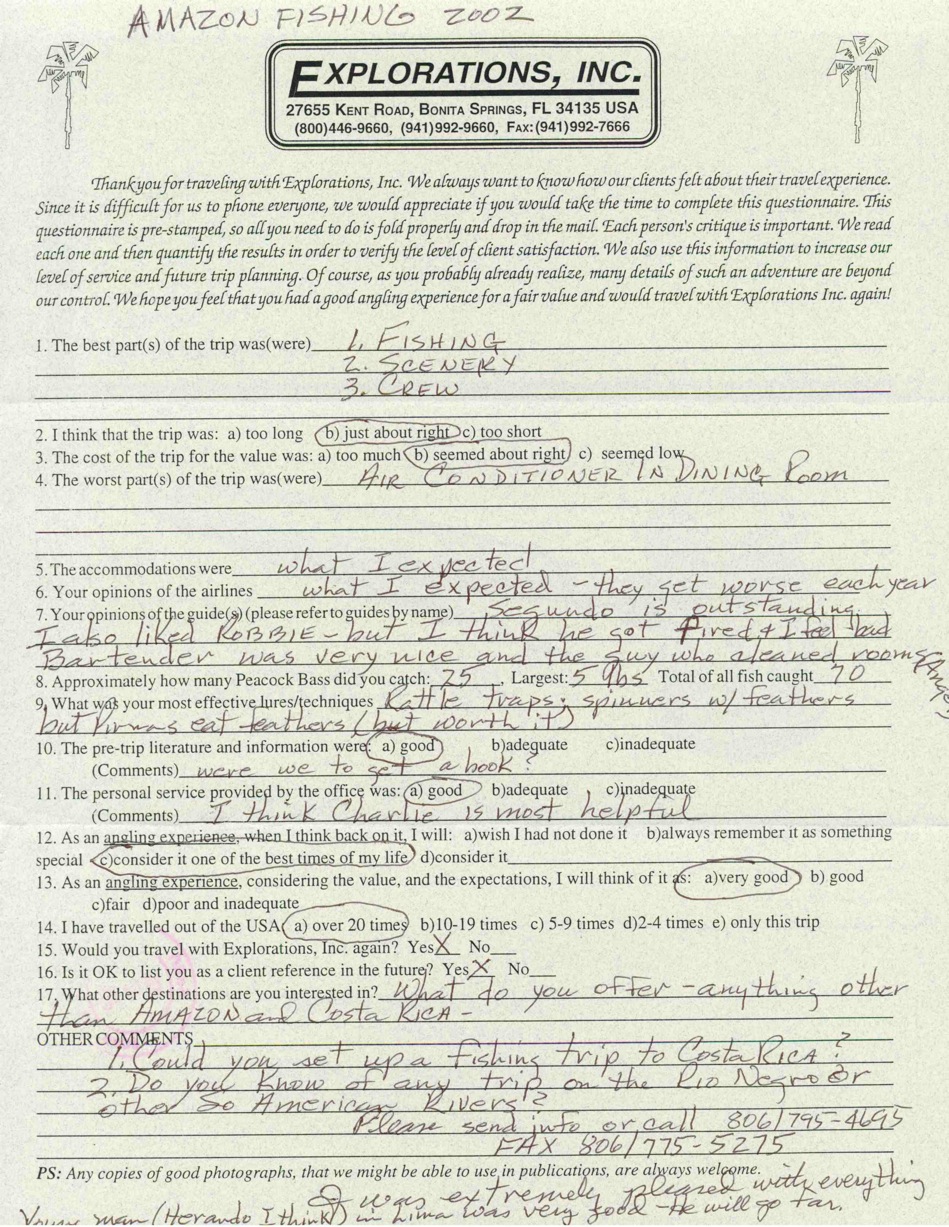 AMAZON FISHING 2002
EXPLORATIONS, INC.
27655 KENT ROAD, BONITA SPRINGS, FL 34135 USA
(800)446-9660, (941)992-9660, FAX:(941)992-7666
Thank you for traveling with Explorations, Inc. We always want to know how our clients felt about their travel experience.
Since it is difficult for us to phone everyone, we would appreciate if you would take the time to complete this questionnaire. This
questionnaire is pre-stamped, so all you need to do is fold properly and drop in the mail. Each person's critique is important. We read
each one and then quantify the results in order to verify the level of client satisfaction. We also use this information to increase our
level of service and future trip planning. Of course, as you probably already realize, many details of such an adventure are beyond
our control. We hope you feel that you had a good angling experience for a fair value and would travel with Explorations Inc. again!
1. The best part(s) of the trip was(were) 1. FISHING
2. SCENERY
3. CREW
2. I think that the trip was: a) too long b) just about right c) too short
3. The cost of the trip for the value was: a) too much b) seemed about right c) seemed low
4. The worst part(s) of the trip was(were) AIR CONDITIONER IN DINING Room
5. The accommodations were what I expected
6. Your opinions of the airlines what I expected - they get worse each year
7. Your opinions of the guide(s) (please refer to guides by name) Segundo is outstanding.
I also liked ROBBIE - but I think he got fired & I feel bad
Bartender was very nice and the guy who cleaned rooms
8. Approximately how many Peacock Bass did you catch: 25, Largest: 5 lbs Total of all fish caught 70
9. What was your most effective lures/techniques Rattle traps; spinners w/ feathers
but Piranas eat feathers (but worth it)
10. The pre-trip literature and information were: a) good b)adequate c)inadequate
(Comments) were we to get a book?
11. The personal service provided by the office was: a) good b)adequate c)inadequate
(Comments) I think Charlie is most helpful
12. As an angling experience, when I think back on it, I will: a)wish I had not done it b)always remember it as something
special c)consider it one of the best times of my life d)consider it
13. As an angling experience, considering the value, and the expectations, I will think of it as: a)very good b) good
c)fair d)poor and inadequate
14. I have travelled out of the USA a) over 20 times b)10-19 times c) 5-9 times d)2-4 times e) only this trip
15. Would you travel with Explorations, Inc. again? Yes X No
16. Is it OK to list you as a client reference in the future? Yes X No
17. What other destinations are you interested in? What do you offer - anything other
than AMAZON and Costa RICA -
OTHER COMMENTS
1. Could you set up a fishing trip to Costa RICA?
2. Do you know of any trip on the Rio Negro or
other So American Rivers?
Please send info or call 806/795-4695
FAX 806/775-5275
PS: Any copies of good photographs, that we might be able to use in publications, are always welcome.
I was extremely pleased with everything
Young man (Herando I think) in Lima was very good - He will go far.